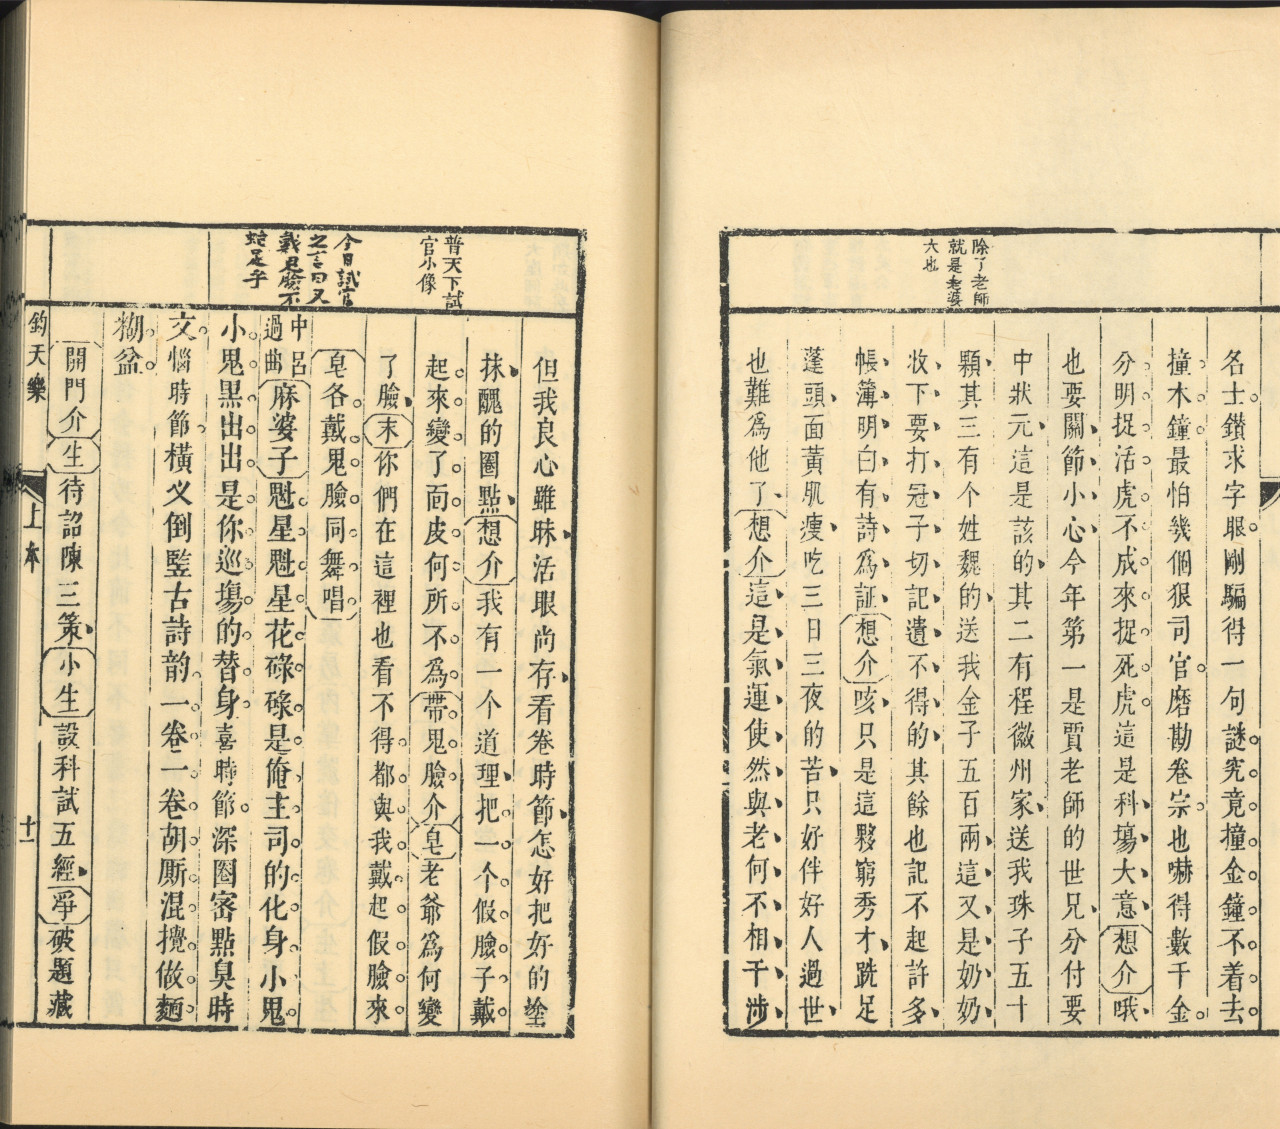 除了老師
就是老婆
大也
名士鑽求字眼剛騙得一句謎究竟撞金鐘不着去
撞木鐘最怕幾個狠司官磨勘卷宗也嚇得數千金
分明捉活虎不成來捉死虎這是科塲大意想介哦
也要關節小心今年第一是賈老師的世兄分付要
中狀元這是該的其二有程徽州家送我珠子五十
顆其三有个姓魏的送我金子五百兩這又是奶奶
收下要打冠子切記遺不得的其餘也記不起許多
帳簿明白有詩爲証想介咳只是這夥窮秀才跣足
蓬頭面黃肌瘦吃三日三夜的苦只好伴好人過世
也難爲他了想介這是氣運使然與老何不相干涉
普天下試
官小像
今日試官
之言曰又
戴鬼臉不
蛇足乎
但我良心雖昧活眼尚存看卷時節怎好把好的塗
抹醜的圈點想介我有一个道理把一个假臉子戴
起來變了面皮何所不爲帶鬼臉介皂老爺爲何變
了臉末你們在這裡也看不得都與我戴起假臉來
皂各戴鬼臉同舞唱
中呂
過曲
麻婆子魁星魁星花碌碌是俺主司的化身小鬼
小鬼黑出出是你巡塲的替身喜時節深圈密點臭時
文惱時節橫义倒竪古詩韵一卷二卷胡厮混攪做麵
糊盆
開門介生待詔陳三策小生設科試五經淨破題藏
鈞天樂
上本
十一